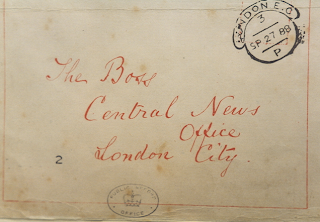 LONDON E.C
3
SP 27 88
P
The Boss
Central News
Office
London City.
2